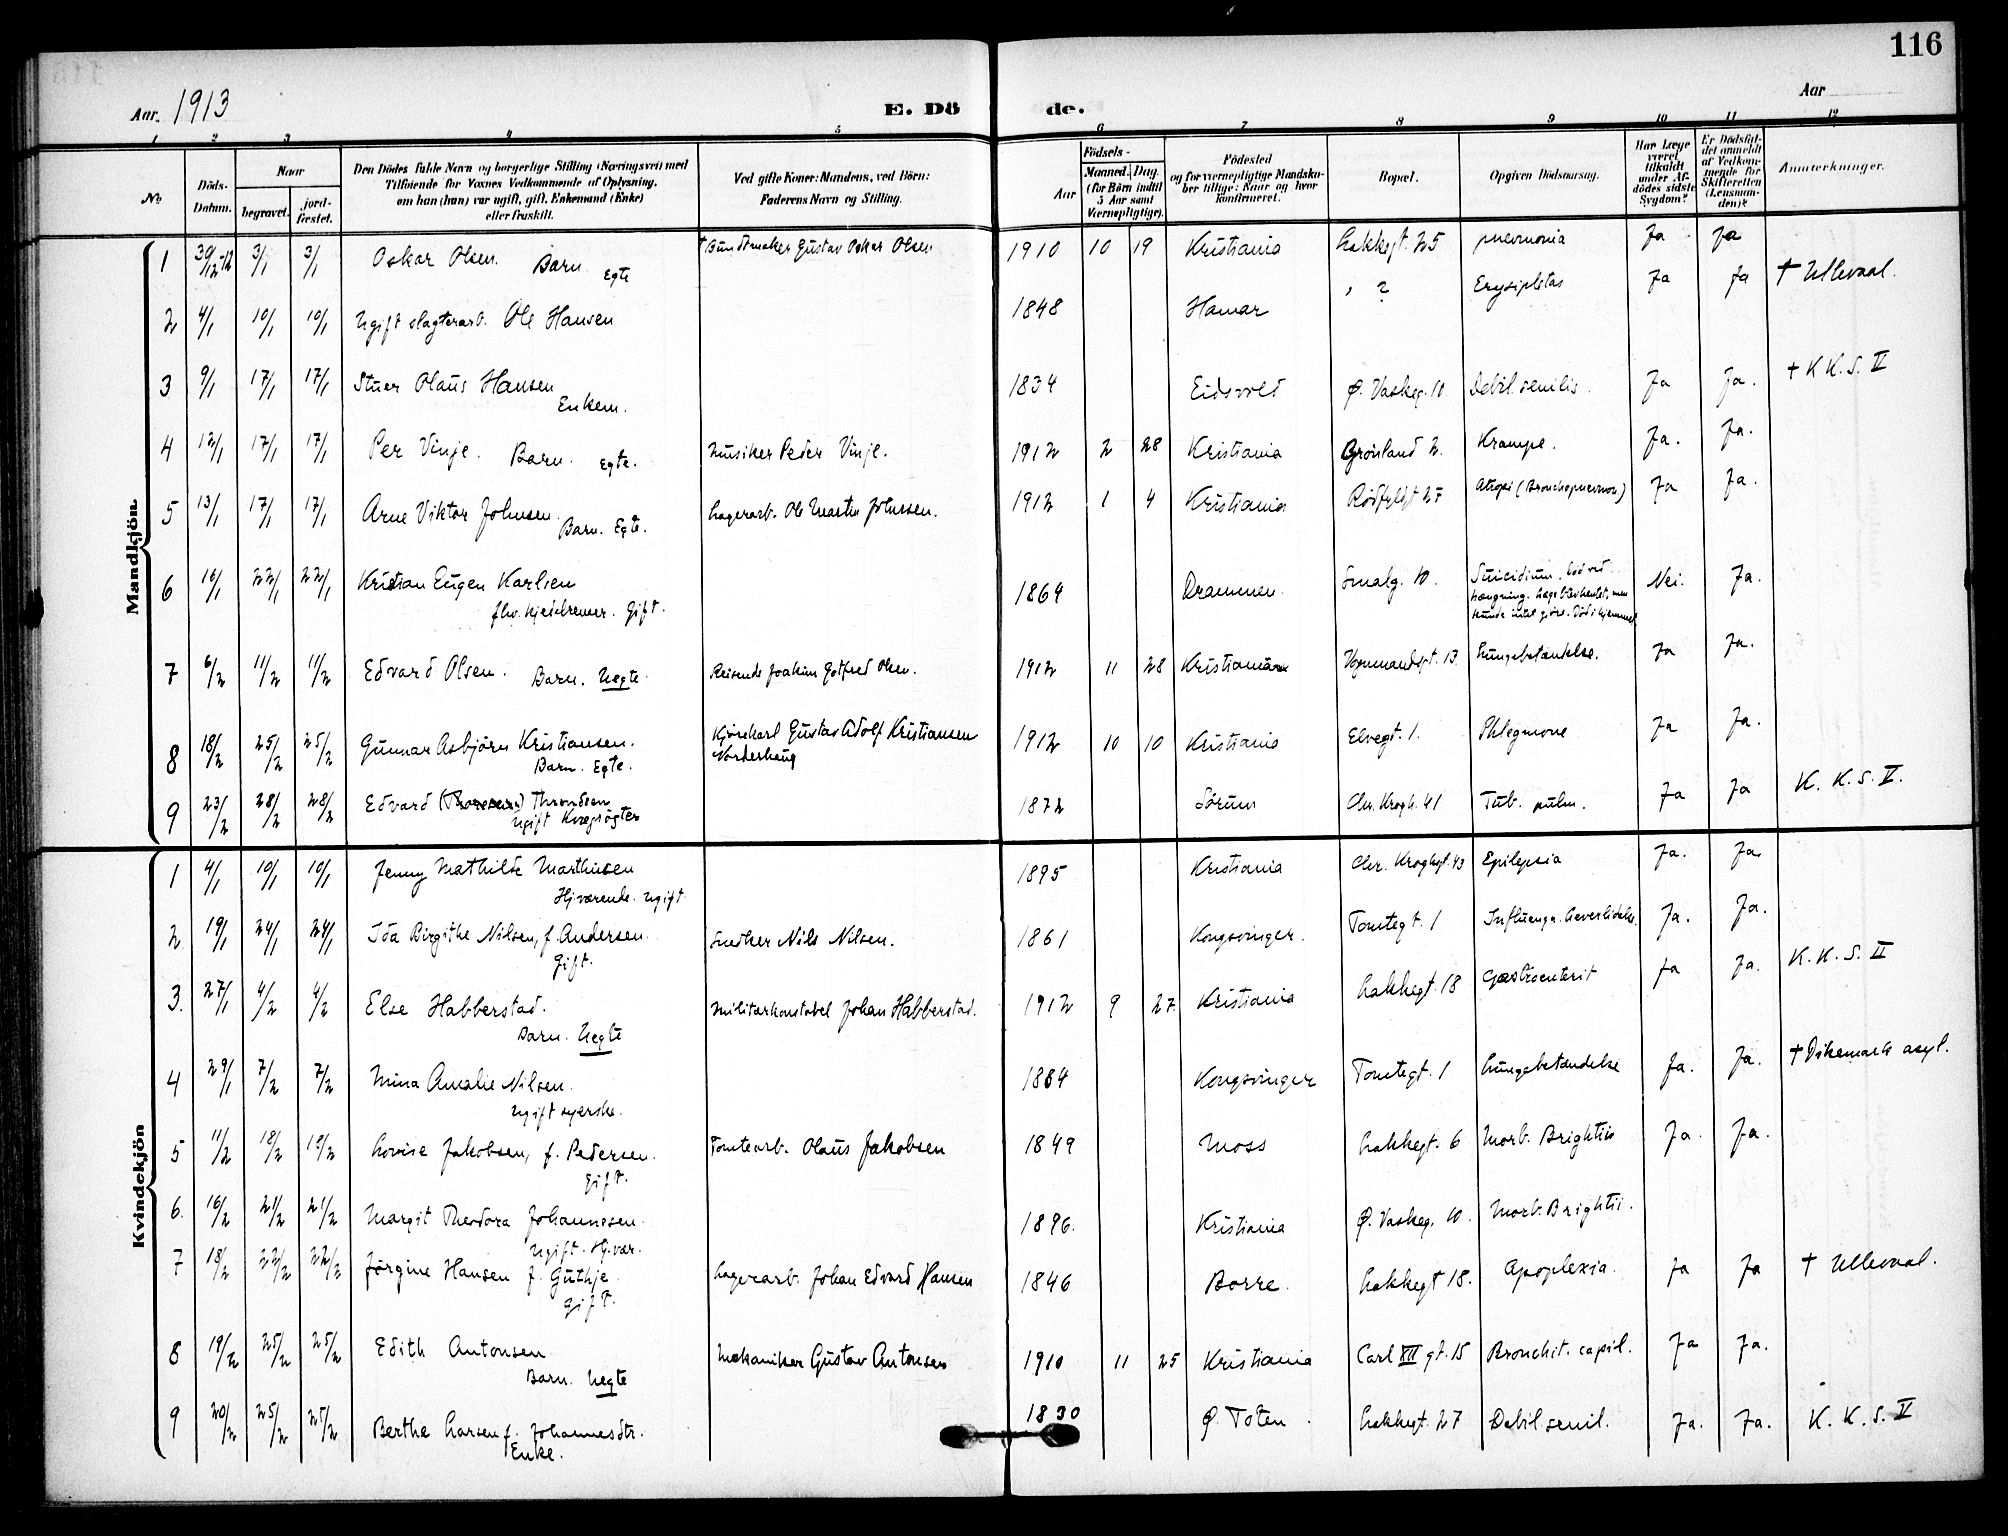 116
Aar. 1913 E. Dö de. Aar
1 2 3 4 5 6 7 8 9 10 11 12
No. Döds-Datum. Naar begravet. jord-fæstet. Den Dödes fulde Navn og borgerlige Stilling (Næringsvei) med Tilföiende for Voxnes Vedkommende af Oplysning, om han (hun) var ugift, gift, Enkemand (Enke) eller fraskilt. Ved gifte Koner: Mandens, ved Börn: Faderens Navn og Stilling. Födsels- Aar Maaned. Dag. (for Börn indtil 5 Aar samt Værnepligtige). Födested og for værnepligtige Mandskaber tillige: Naar og hvor konfirmeret. Bopæl. Opgiven Dödsaarsag. Har Læge været tilkaldt under Afdödes sidste Sygdom? Er Dödsfaldet anmeldt af Vedkommende for Skifteretten (Lensmanden)? Anmærkninger.
Mandkjön.
1 30/12-12 3/1 3/1 Oskar Olsen. Barn Egte † Bundtmaker Gustav Oskar Olsen 1910 10 19 Kristiania Lakkegt. 25 pneumonia Ja Ja
2 4/1 10/1 10/1 Ugift slagterarb. Ole Hansen 1848 Hamar ? Erysipelas Ja Ja † Ullevaal.
3 9/1 17/1 17/1 Stuer Olaus Hansen Enkem. 1834 Eidsvold Ø. Vaskeg. 10 Debil. senilis. Ja Ja. † K K. S. V
4 12/1 17/1 17/1 Per Vinje. Barn. Egte. Musiker Peder Vinje. 1912 2 28 Kristiania Grönland 2. Krampe. Ja. Ja.
5 13/1 17/1 17/1 Arne Viktor Johnsen. Barn. Egte. Lagerarb. Ole Martin Johnsen. 1912 1 4 Kristiania Rödfyldgt 27 Atropi (Bronchopneumon) Ja Ja.
6 16/1 22/1 22/1 Kristian Eugen Karlsen fhv. kjedelrenser. Gift. 1864 Drammen. Smalg. 10. Suicidium. Död ved hængning. Læge blev hentet, men kunde intet gjöre. Död i hjemmet. Nei. Ja.
7 6/2 11/2 11/2 Edvard Olsen. Barn. Uegte. Reisende Joakim Gotfred Olsen. 1912 11 28 Kristiania Vognmandsgt. 13. Lungebetændelse. Ja Ja.
8 18/2 25/2 25/2 Gunnar Asbjörn Kristiansen. Barn. Egte. Kjörekarl Gustav Adolf Kristiansen Norderhaug 1912 10 10 Kristiania Elvegt. 1. Phlegmone Ja Ja.
9 23/2 28/2 28/2 Edvard Throndsen ugift Kvægrögter 1872 Sörum Chr. Krogh. 41 Tub. pulm. Ja Ja K. K. S. V.
Kvindekjön
1 4/1 10/1 10/1 Jenny Mathilde Marthinsen Hj.værende. ugift. 1895 Kristiania Chr. Kroghgt. 43 Epilepsia Ja. Ja.
2. 19/1 24/1 24/1 Ida Birgithe Nilsen, f. Andersen. Gift. Snedker Nils Nilsen. 1861 Kongsvinger. Tomtegt. 1 Influenza. Leverlidelse. Ja. Ja.
3. 27/1 4/2 4/2 Else Habberstad. Barn. Uegte Militærkonstabel Johan Habberstad. 1912 9 27. Kristiania Lakkegt. 18 Gastroenterit Ja Ja. K. K. S. II
4 29/1 7/2 7/2 Mina Amalie Nilsen. Ugift syerske. 1884 Kongsvinger Tomtegt. 1 Lungebetændelse Ja. Ja. † Dikemark asyl.
5 11/2 18/2 18/2 Lovise Jakobsen, f. Pedersen. Gift. Tomtearb. Olaus Jakobsen 1849 Moss Lakkegt. 6 Morb. Brightii Ja. Ja.
6. 16/2 21/2 21/2 Margit Theodora Johannesen. Ugift. Hj.vær. 1896. Kristiania Ø. Vaskeg. 10. Morb. Brightii.
7 18/2 22/2 22/2 Jörgine Hansen f. Guthje. Gift. Lagerarb. Johan Edvard Hansen 1846 Borre. Lakkegt 18. Apoplexia. Ja Ja † Ullevaal.
8 19/2 25/2 25/2 Edith Antonsen Barn. Uegte Mekaniker Gustav Antonsen 1910 11 25 Kristiania Carl XII gt. 15 Bronchit. capil. Ja Ja.
9 20/2 25/2 25/2 Berthe Larsen f. Johannesdtr. Enke. 1830 Ø. Toten. Lakkegt. 27 Debil senil. Ja. Ja. K. K. S. V